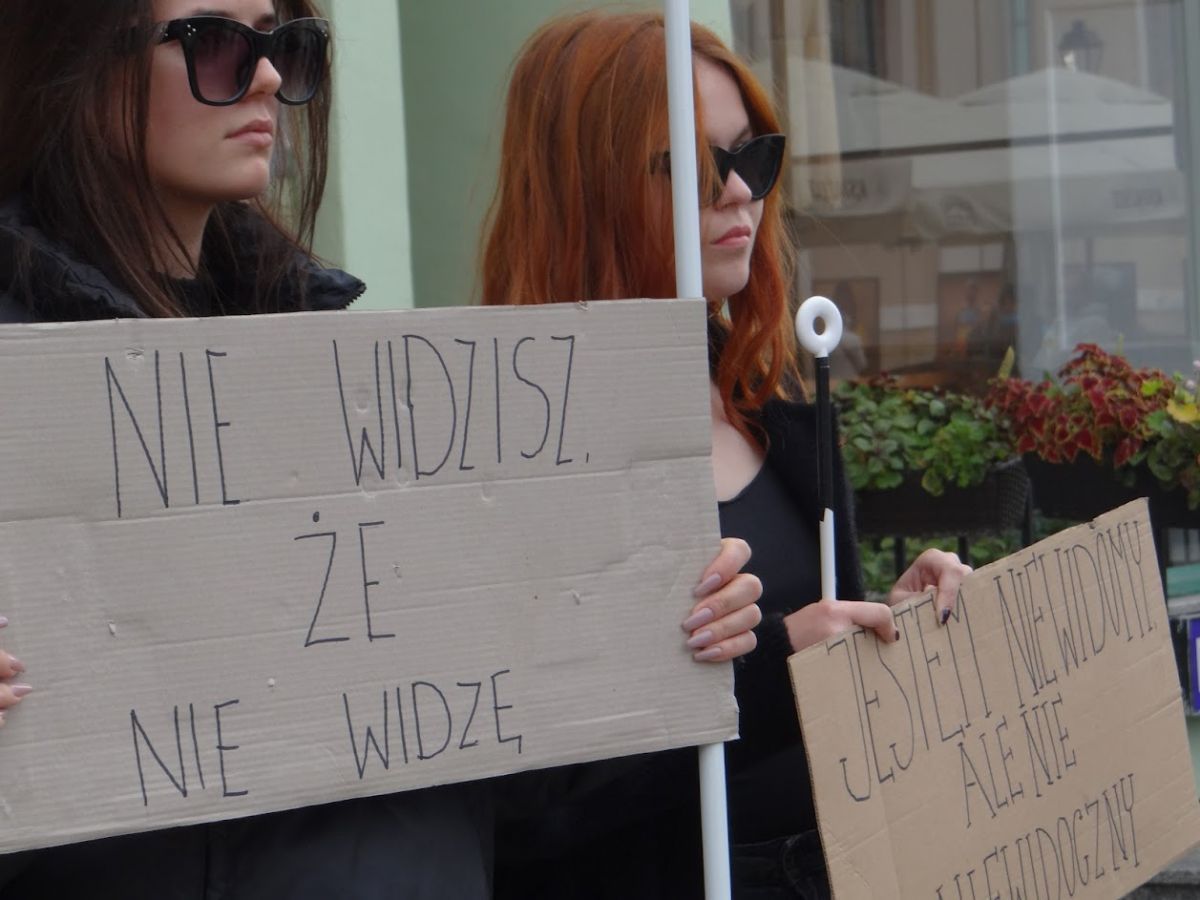 NIE WIDZISZ,
ŻE
NIE WIDZĘ
JESTEM NIEWIDOMY
ALE NIE
NIEWIDOCZNY